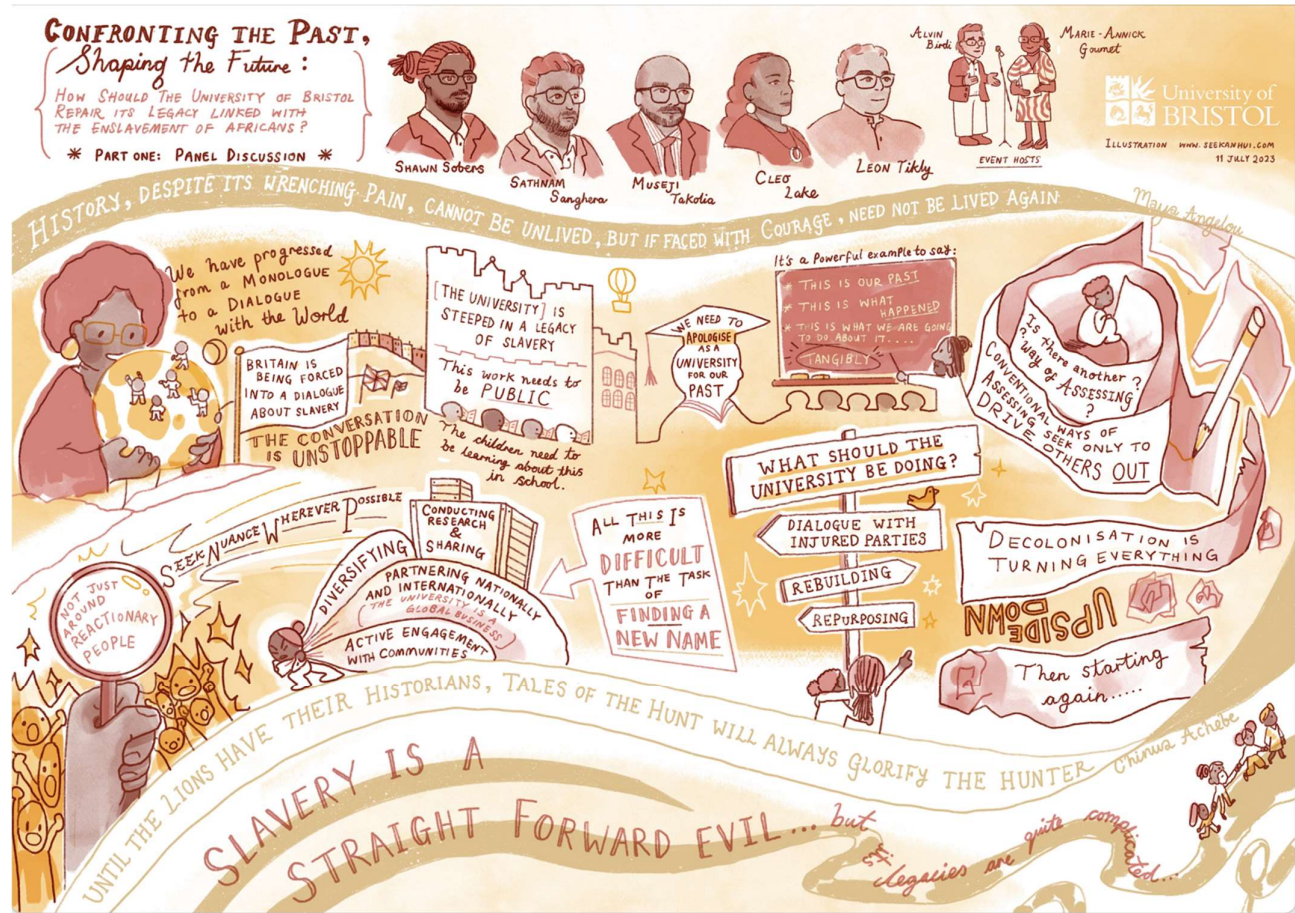 CONFRONTING THE PAST,
Shaping the Future:
HOW SHOULD THE UNIVERSITY OF BRISTOL
REPAIR ITS LEGACY LINKED WITH
THE ENSLAVEMENT OF AFRICANS?
* PART ONE: PANEL DISCUSSION *
SHAWN Sobers
SATHNAM
Sanghera
MUSEJI
Takolia
CLEO
Lake
LEON Tikly
ALVIN
Birdi
MARIE-ANNICK
Gournet
EVENT HOSTS
University of
BRISTOL
ILLUSTRATION WWW.SEEKANHUI.COM
11 JULY 2023
HISTORY, DESPITE ITS WRENCHING PAIN, CANNOT BE UNLIVED, BUT IF FACED WITH COURAGE, NEED NOT BE LIVED AGAIN
Maya Angelou
We have progressed
from a MONOLOGUE
to a DIALOGUE
with the World
BRITAIN IS
BEING FORCED
INTO A DIALOGUE
ABOUT SLAVERY
THE CONVERSATION
IS UNSTOPPABLE
[THE UNIVERSITY] IS
STEEPED IN A LEGACY
OF SLAVERY
This work needs to
be PUBLIC
The children need to
be learning about this
in School.
WE NEED TO
APOLOGISE
AS A
UNIVERSITY
FOR OUR
PAST
It's a Powerful example to say:
* THIS IS OUR PAST
* THIS IS WHAT
HAPPENED
* THIS IS WHAT WE ARE GOING
TO DO ABOUT IT....
TANGIBLY
Is there another ?
? way of ASSESSING
?
CONVENTIONAL WAYS OF
ASSESSING SEEK ONLY TO
DRIVE OTHERS OUT
SEEK NUANCE WHEREVER POSSIBLE
NOT JUST
AROUND
REACTIONARY
PEOPLE
CONDUCTING
RESEARCH
&
SHARING
DIVERSIFYING
PARTNERING NATIONALLY
AND INTERNATIONALLY
(THE UNIVERSITY IS A
GLOBAL BUSINESS)
ACTIVE ENGAGEMENT
WITH COMMUNITIES
ALL THIS IS
MORE
DIFFICULT
THAN THE TASK
OF
FINDING A
NEW NAME
WHAT SHOULD THE
UNIVERSITY BE DOING?
DIALOGUE WITH
INJURED PARTIES
REBUILDING
REPURPOSING
DECOLONISATION IS
TURNING EVERYTHING
UPSIDE
DOWN
Then starting
again.....
UNTIL THE LIONS HAVE THEIR HISTORIANS, TALES OF THE HUNT WILL ALWAYS GLORIFY THE HUNTER
Chinua Achebe
SLAVERY IS A
STRAIGHT FORWARD EVIL... but
its legacies are quite complicated...